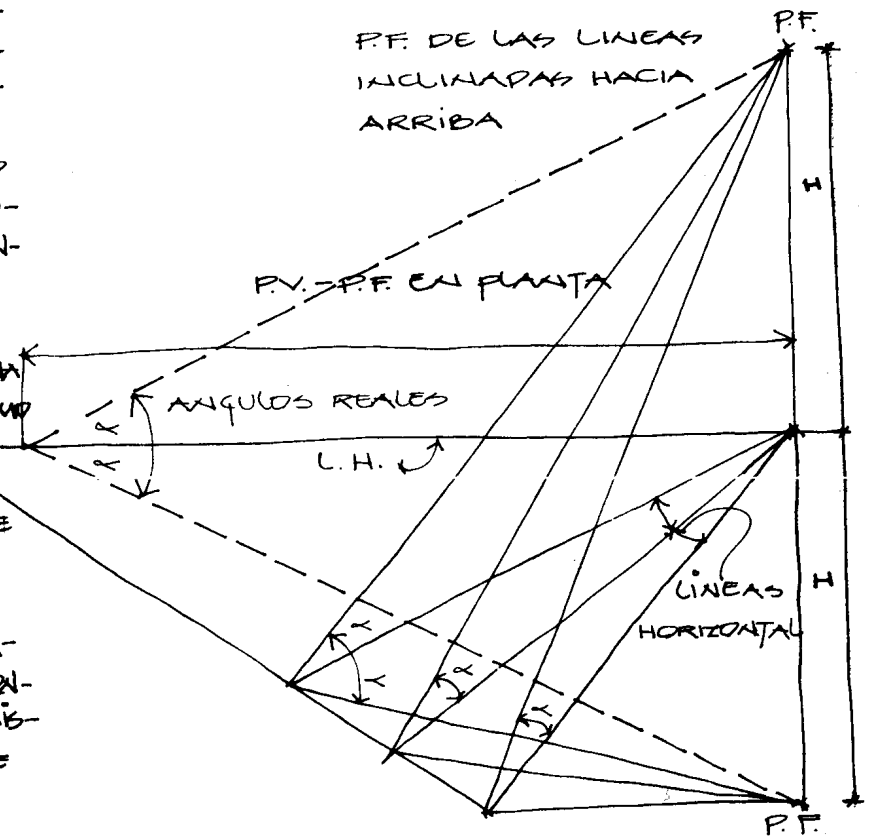 P.F.
P.F. DE LAS LINEAS
INCLINADAS HACIA
ARRIBA
H
N-
P.V.-P.F. EN PLANTA
ANGULOS REALES
α
α
L.H.
E
LINEAS
HORIZONTAL
H
α
α
α
α
E
P.F.